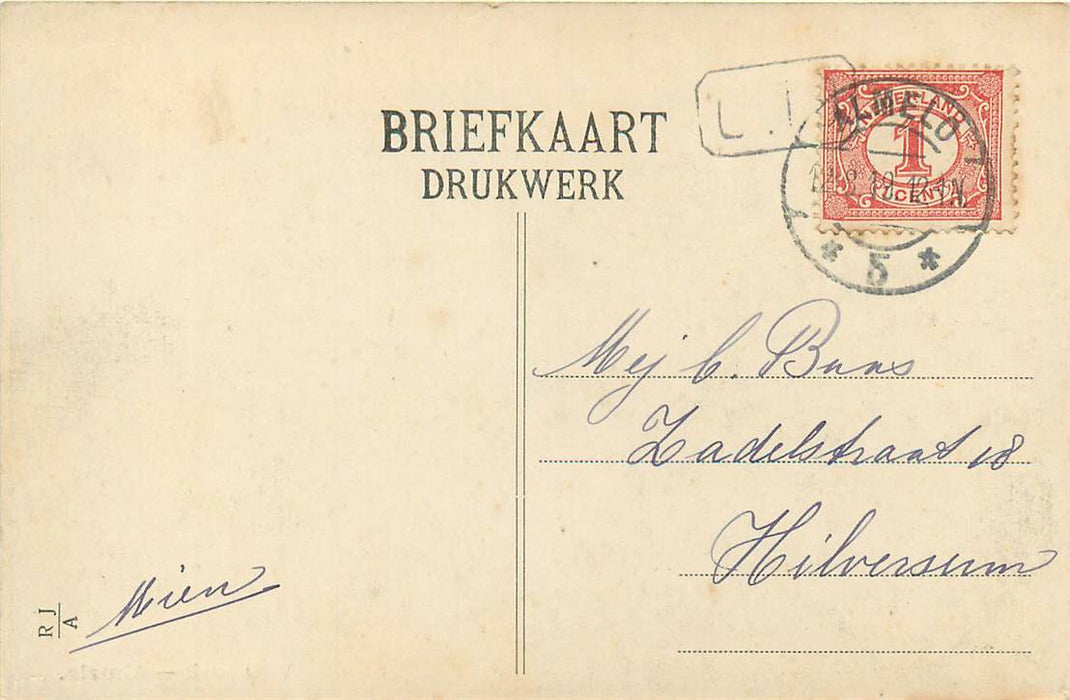 BRIEFKAART
DRUKWERK
L. I
NEDERLAND
1
CENT
ALMELO
* 5 *
Mej C. Baas
Zadelstraat 18
Hilversum
Mien
R J
A